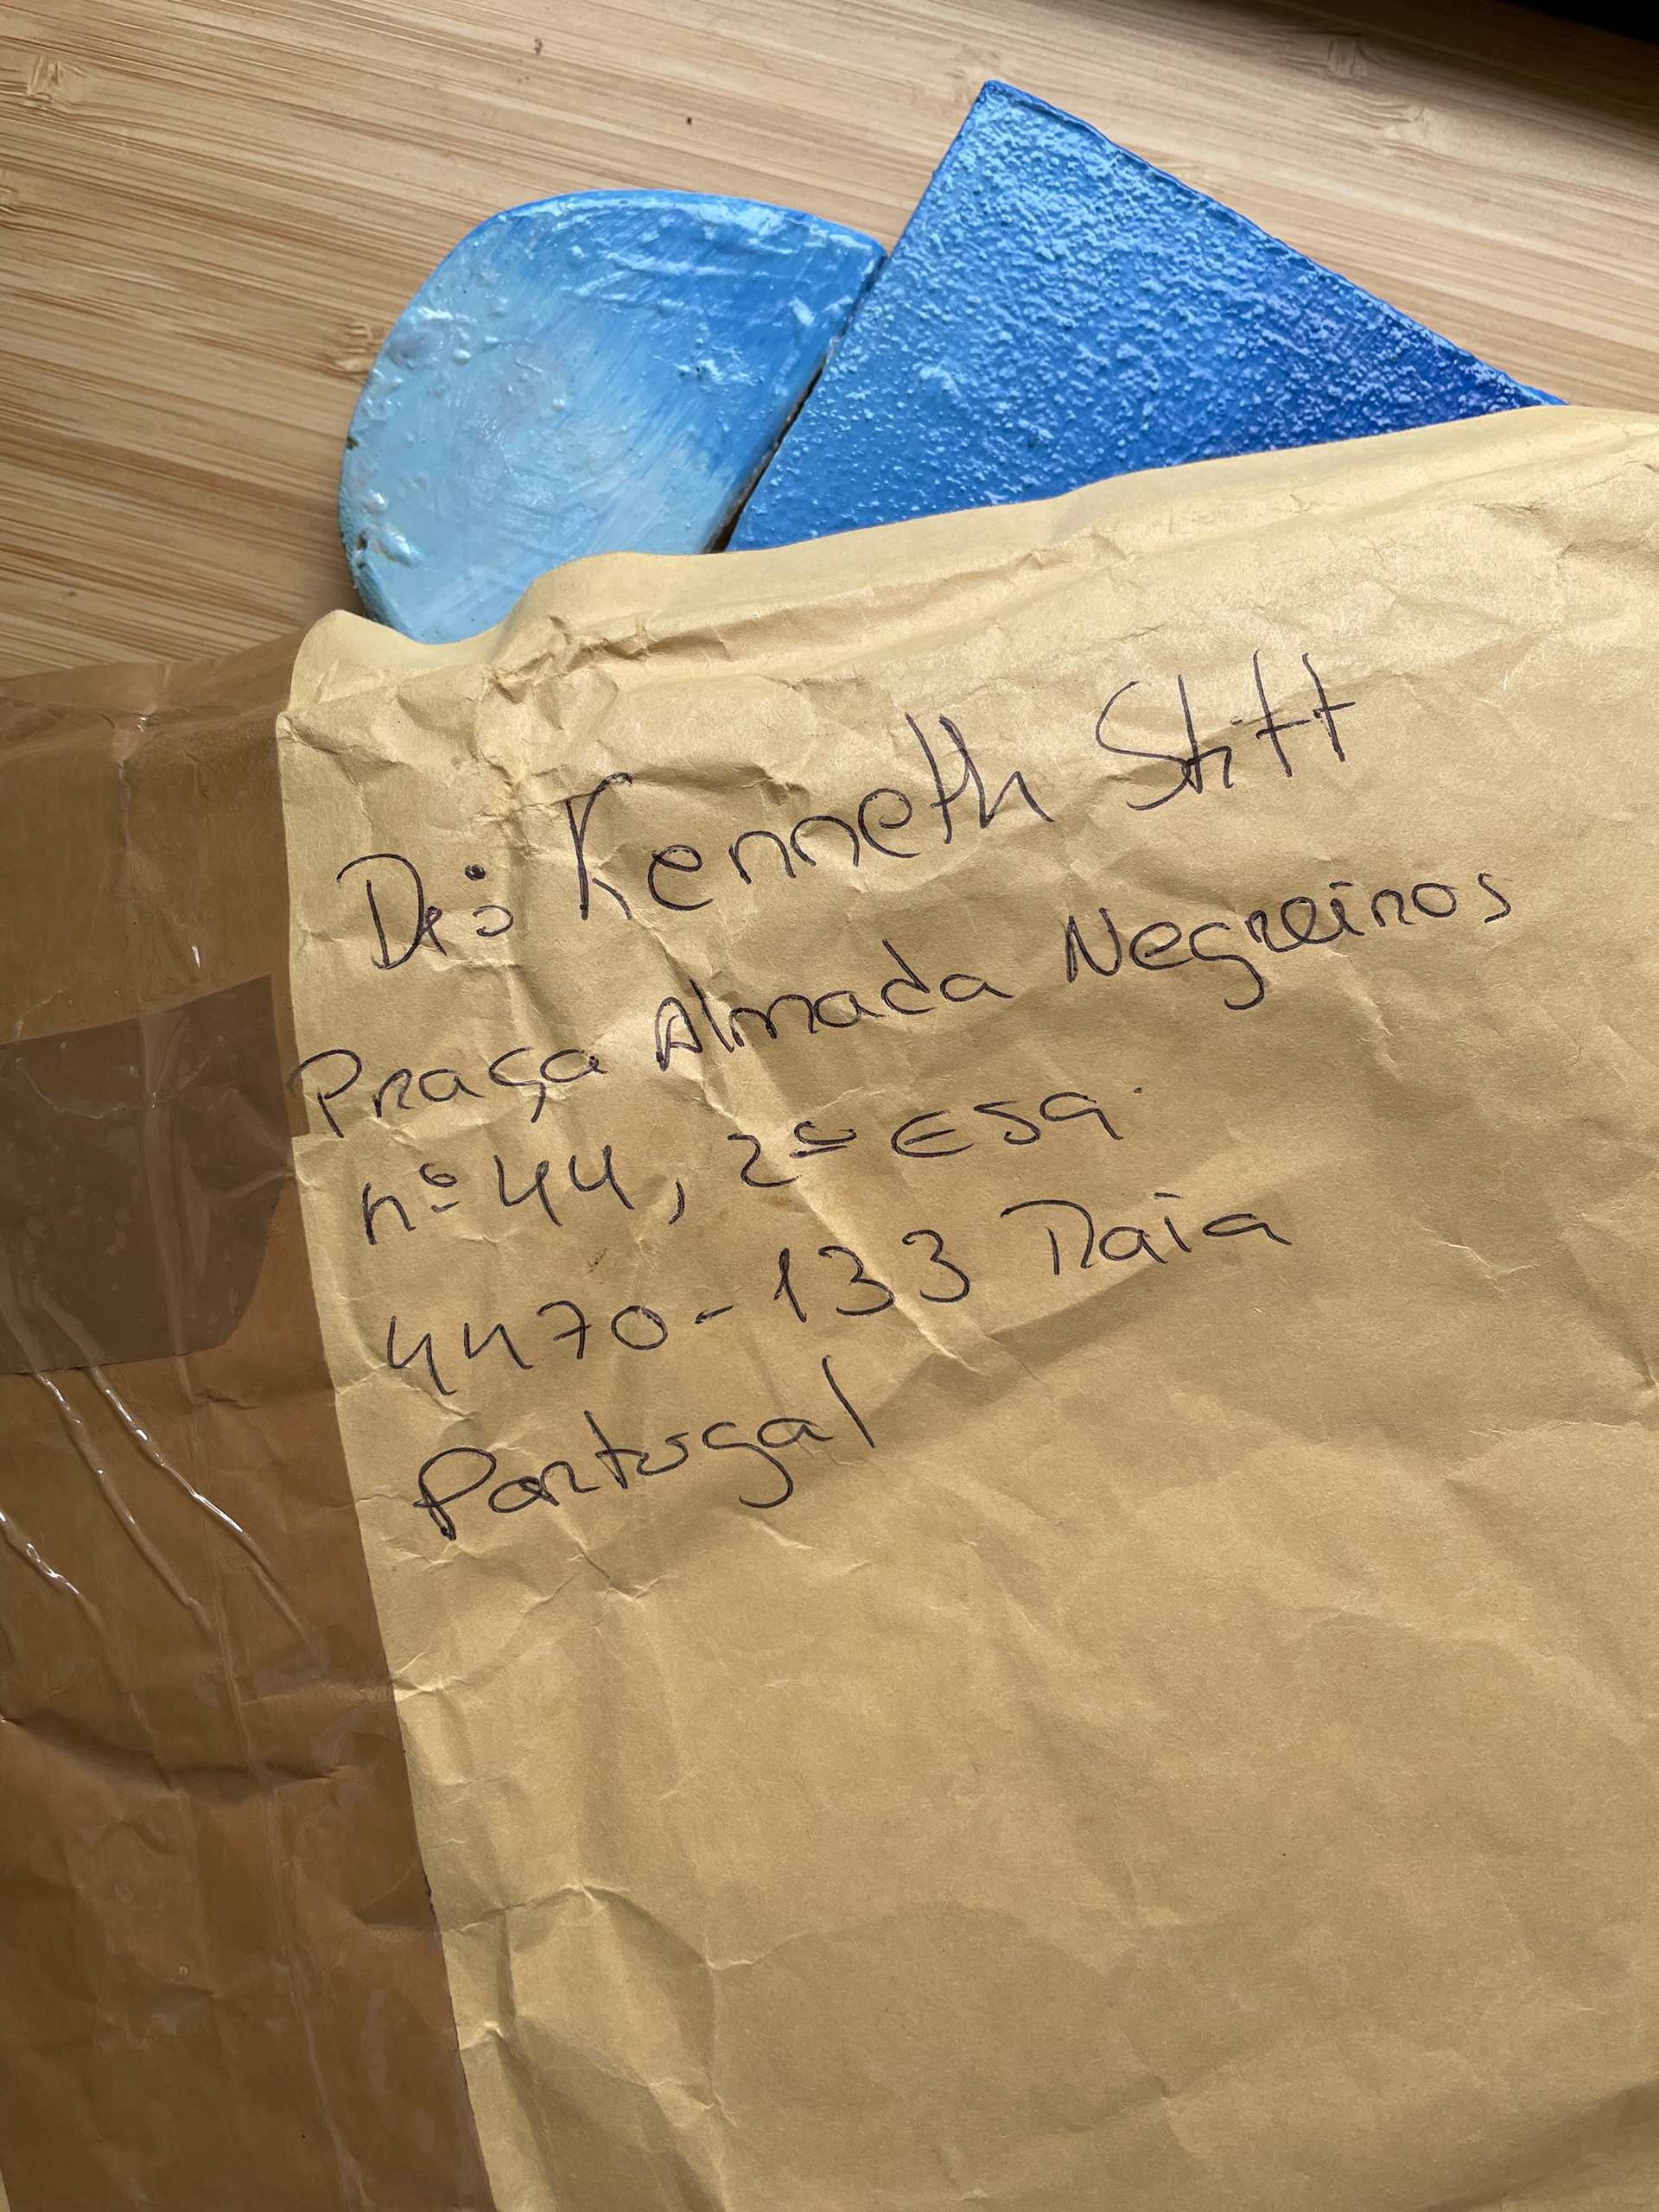 De: Kenneth Stitt
Praça Almada Negreiros
nº 44, 2º ESQ.
4470-133 Maia
Portugal